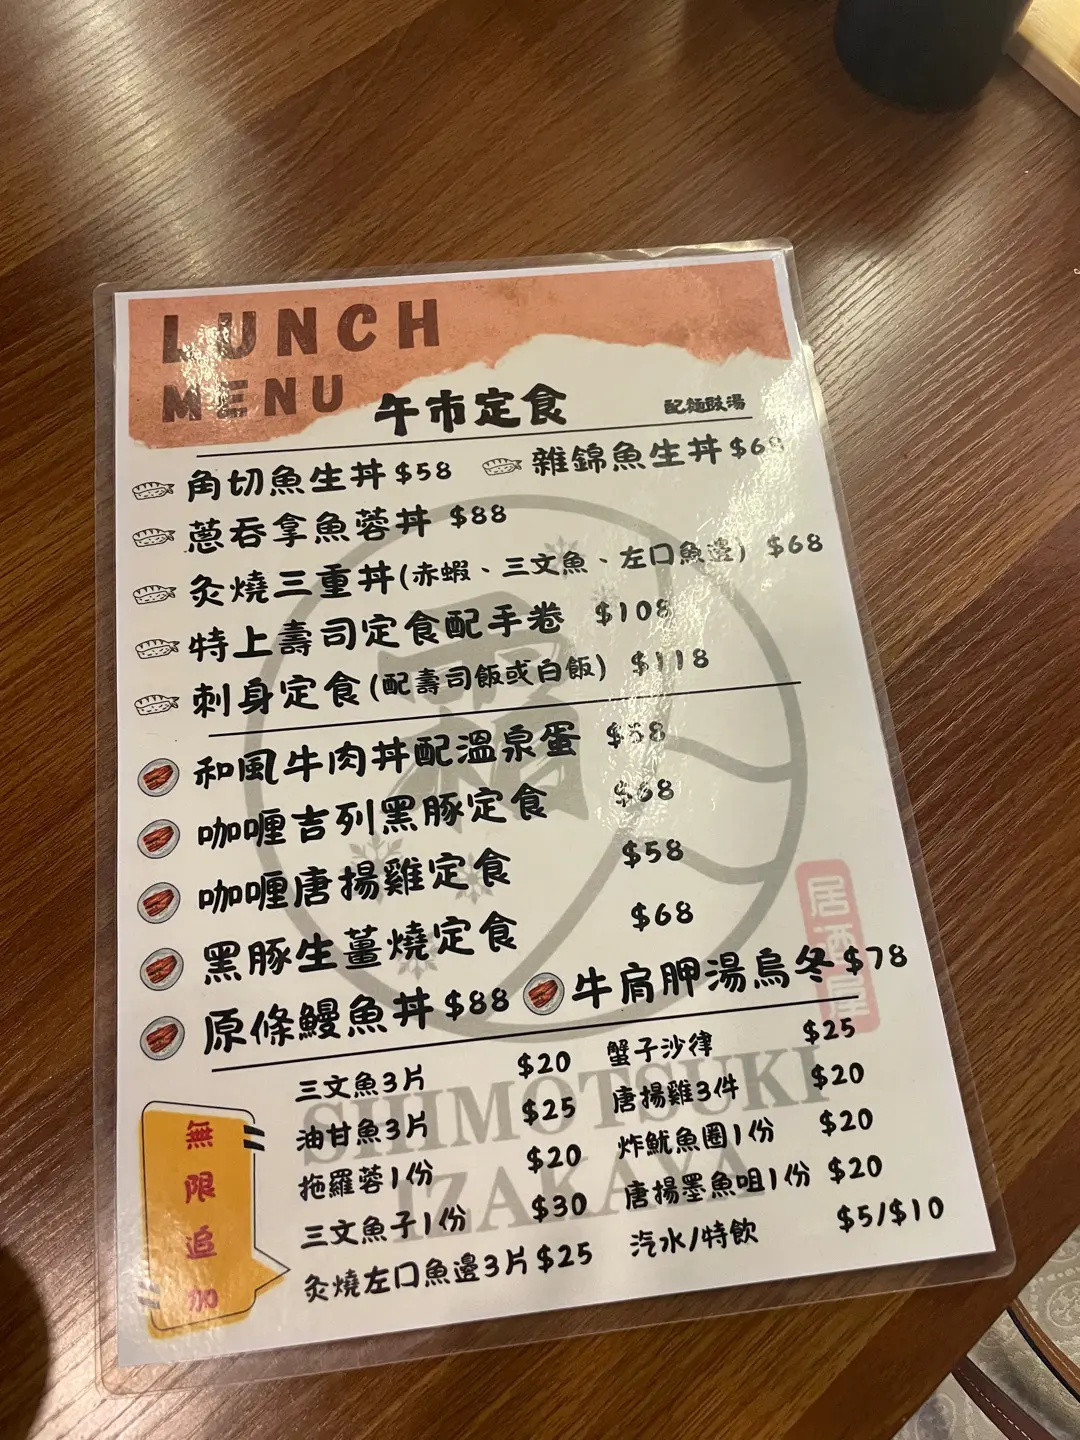 LUNCH
MENU
午市定食
配麵豉湯
角切魚生丼 $58
雜錦魚生丼 $68
蔥吞拿魚蓉丼 $88
炙燒三重丼(赤蝦、三文魚、左口魚邊) $68
特上壽司定食配手卷 $108
刺身定食(配壽司飯或白飯) $118
和風牛肉丼配溫泉蛋 $58
咖喱吉列黑豚定食 $68
咖喱唐揚雞定食 $58
黑豚生薑燒定食 $68
原條鰻魚丼 $88
牛肩胛湯烏冬 $78
無限追加
三文魚3片 $20
油甘魚3片 $25
拖羅蓉1份 $20
三文魚子1份 $30
炙燒左口魚邊3片 $25
蟹子沙律 $25
唐揚雞3件 $20
炸魷魚圈1份 $20
唐揚墨魚咀1份 $20
汽水/特飲 $5/$10
霜月
居酒屋
SHIMOTSUKI
IZAKAYA